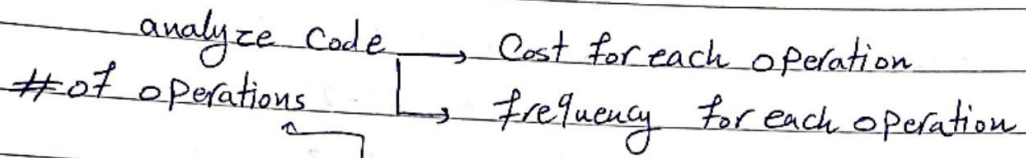 analyze Code → Cost for each operation
#of operations ↳ frequency for each operation